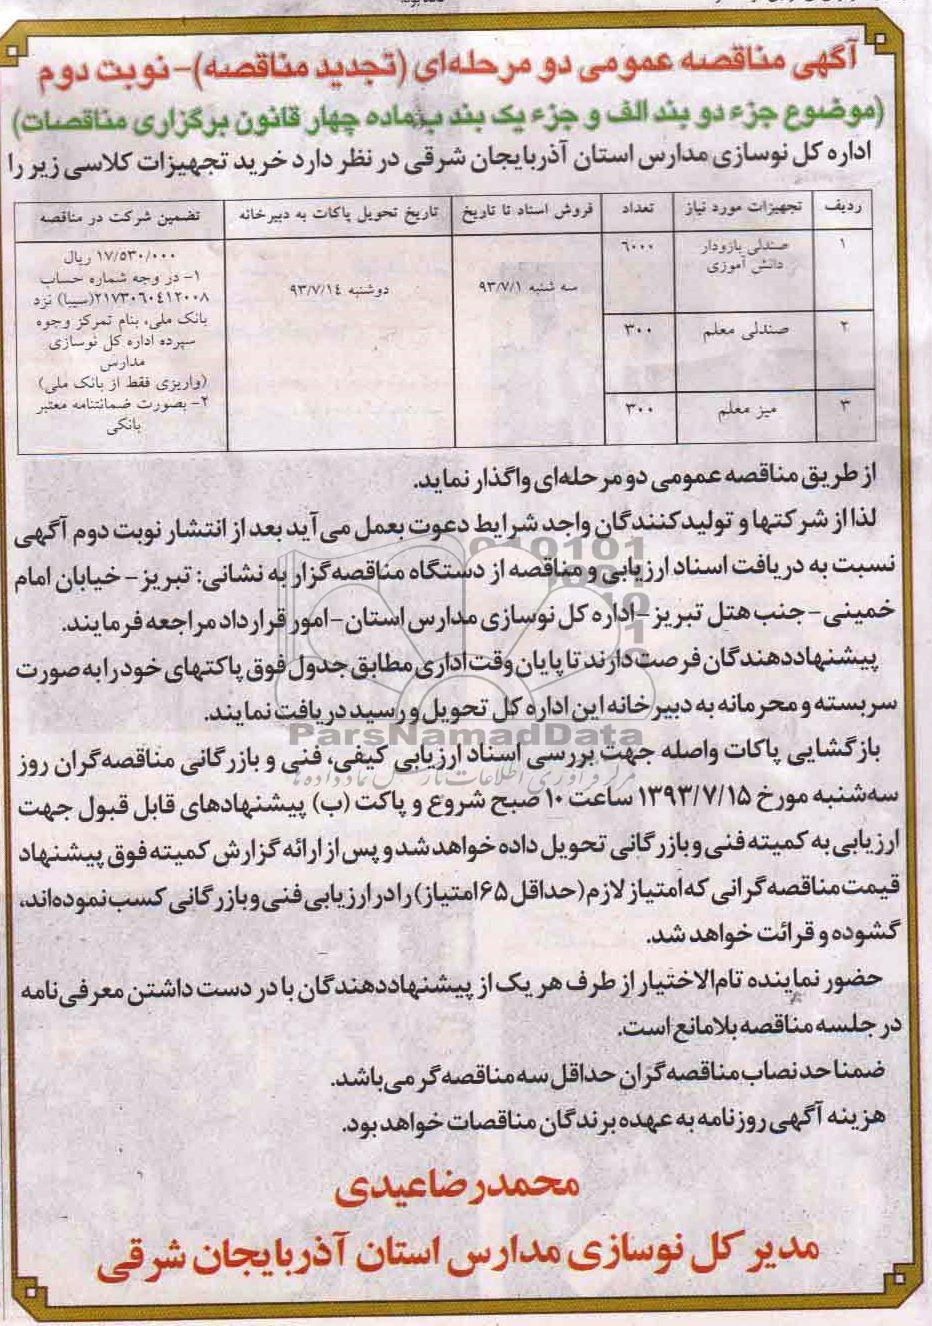 آگهی مناقصه عمومی دو مرحله‌ای (تجدید مناقصه)- نوبت دوم
(موضوع جزء دو بند الف و جزء یک بند ب ماده چهار قانون برگزاری مناقصات)
اداره کل نوسازی مدارس استان آذربایجان شرقی در نظر دارد خرید تجهیزات کلاسی زیر را
ردیف تجهیزات مورد نیاز تعداد فروش اسناد تا تاریخ تاریخ تحویل پاکات به دبیرخانه تضمین شرکت در مناقصه
۱ صندلی بازودار دانش آموزی ۶۰۰۰ سه شنبه ۹۳/۷/۱ دوشنبه ۹۳/۷/۱٤
۲ صندلی معلم ۳۰۰
۳ میز معلم ۳۰۰
۱۷/۵۳۰/۰۰۰ ریال
۱- در وجه شماره حساب
۲۱۷۳۰٦۰٤۱۲۰۰۸(سیبا) نزد
بانک ملی، بنام تمرکز وجوه
سپرده اداره کل نوسازی
مدارس
(واریزی فقط از بانک ملی)
۲- بصورت ضمانتنامه معتبر
بانکی
از طریق مناقصه عمومی دو مرحله‌ای واگذار نماید.
لذا از شرکتها و تولیدکنندگان واجد شرایط دعوت بعمل می آید بعد از انتشار نوبت دوم آگهی
نسبت به دریافت اسناد ارزیابی و مناقصه از دستگاه مناقصه‌گزار به نشانی: تبریز- خیابان امام
خمینی- جنب هتل تبریز- اداره کل نوسازی مدارس استان- امور قرارداد مراجعه فرمایند.
پیشنهاددهندگان فرصت دارند تا پایان وقت اداری مطابق جدول فوق پاکتهای خود را به صورت
سربسته و محرمانه به دبیرخانه این اداره کل تحویل و رسید دریافت نمایند.
ParsNamadData
بازگشایی پاکات واصله جهت بررسی اسناد ارزیابی کیفی، فنی و بازرگانی مناقصه‌گران روز
سه‌شنبه مورخ ۱۳۹۳/۷/۱۵ ساعت ۱۰ صبح شروع و پاکت (ب) پیشنهادهای قابل قبول جهت
ارزیابی به کمیته فنی و بازرگانی تحویل داده خواهد شد و پس از ارائه گزارش کمیته فوق پیشنهاد
قیمت مناقصه‌گرانی که امتیاز لازم (حداقل ۶۵ امتیاز) را در ارزیابی فنی و بازرگانی کسب نموده‌اند،
گشوده و قرائت خواهد شد.
حضور نماینده تام‌الاختیار از طرف هر یک از پیشنهاددهندگان با در دست داشتن معرفی‌نامه
در جلسه مناقصه بلامانع است.
ضمنا حد نصاب مناقصه‌گران حداقل سه مناقصه‌گر می‌باشد.
هزینه آگهی روزنامه به عهده برندگان مناقصات خواهد بود.
محمدرضا عیدی
مدیر کل نوسازی مدارس استان آذربایجان شرقی